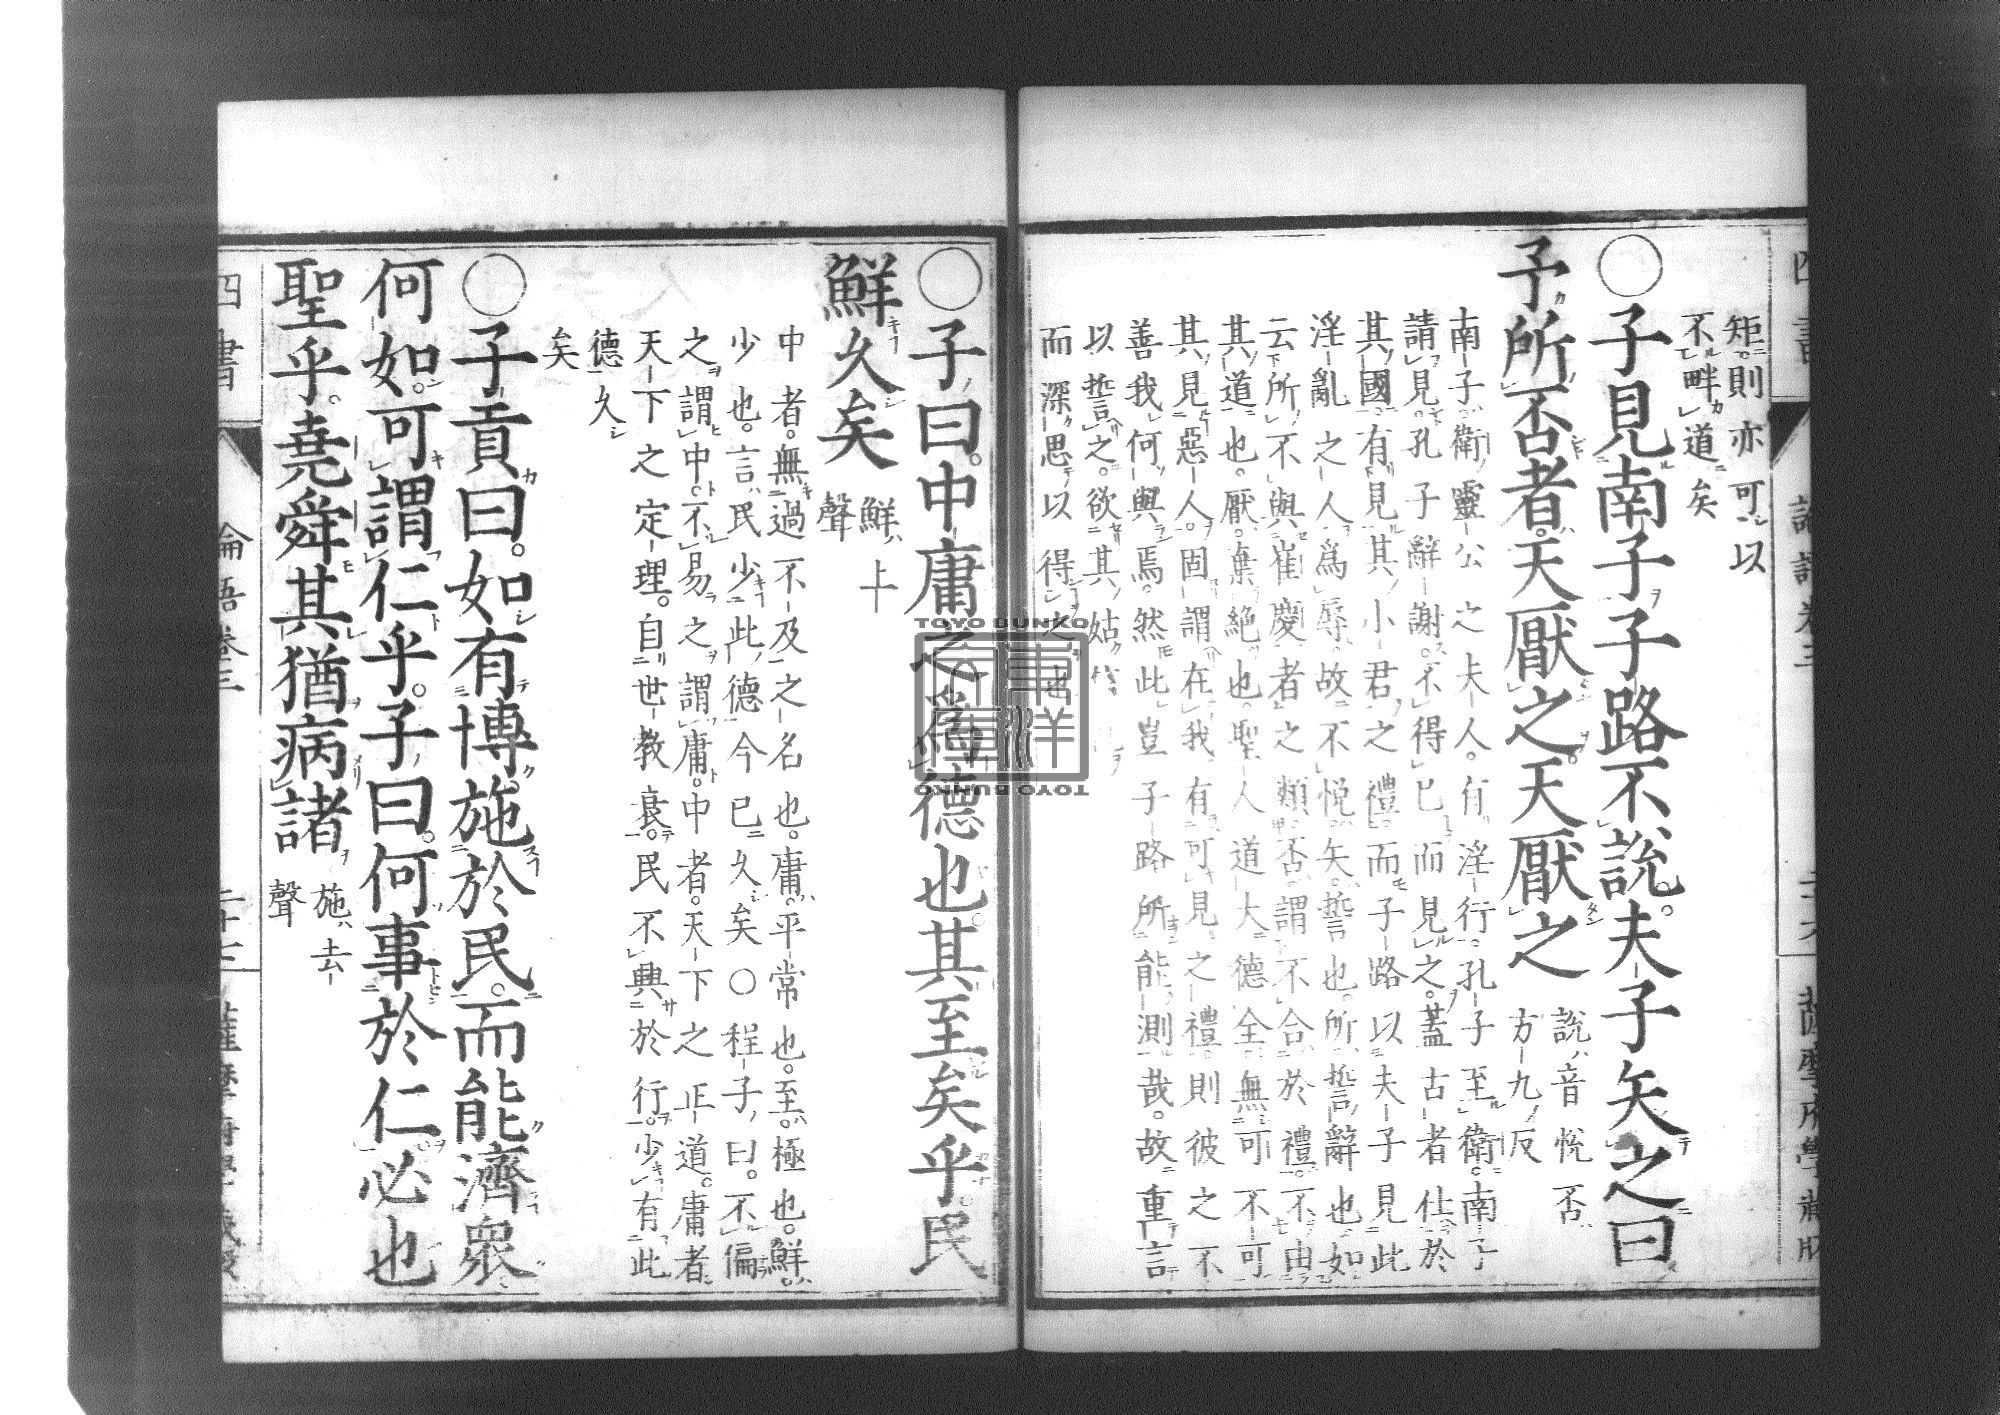 矩。則亦可以
不畔道矣
○子見南子子路不說。夫子矢之曰
予所否者。天厭之。天厭之
說音悅否
方九反
南子衛靈公之夫人。有淫行。孔子至衛。南子
請見。孔子辭謝。不得已而見之。蓋古者仕於
其國。有見其小君之禮。而子路以夫子見此
淫亂之人爲辱。故不悅。矢。誓也。所。誓辭也。如
云所不與崔慶者之類。否。謂不合於禮。不由
其道也。厭。棄絕也。聖人道大德全。無可不可
其見惡人。固謂在我有可見之禮。則彼之不
善我何與焉。然此豈子路所能測哉。故重言
以誓之。欲其姑
而深思以得之也
○子曰。中庸之爲德也。其至矣乎。民
鮮久矣
鮮上
聲
中者。無過不及之名也。庸。平常也。至。極也。鮮。
少也。言民少此德今已久矣○程子曰。不偏
之謂中。不易之謂庸。中者。天下之正道。庸者
天下之定理。自世教衰。民不興於行。少有此
德久
矣
○子貢曰。如有博施於民。而能濟衆
何如。可謂仁乎。子曰。何事於仁必也
聖乎。堯舜其猶病諸
施去
聲
四書
論語卷三
二十三
TOYO BUNKO
東洋文庫
TOYO BUNKO